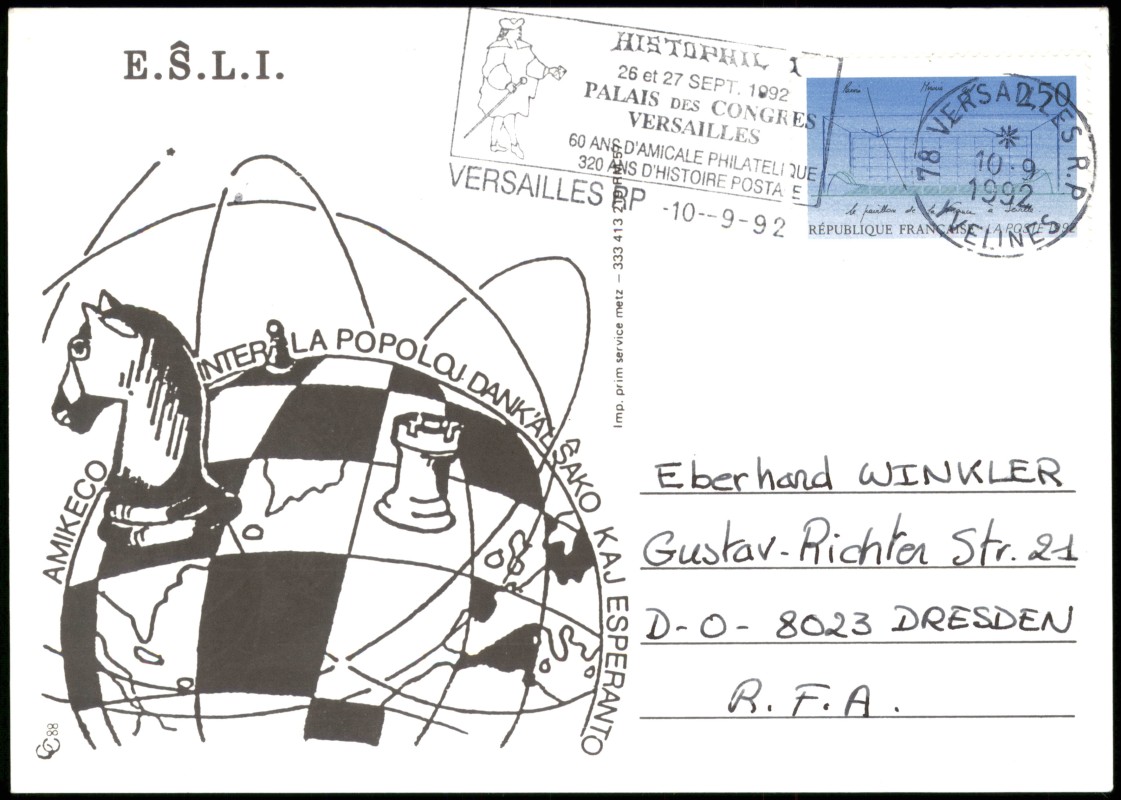 E.Ŝ.L.I.
HISTOPHIL 1
26 et 27 SEPT. 1992
PALAIS DES CONGRES
VERSAILLES
60 ANS D'AMICALE PHILATELIQUE
320 ANS D'HISTOIRE POSTALE
VERSAILLES RP -10--9-92
2,50
78 VERSAILLES R.P
10-9
1992
YVELINES
le pavillon de la France à Séville
RÉPUBLIQUE FRANÇAISE LA POSTE 1992
Imp. prim service metz – 333 413 219 RM 57
AMIKECO INTER LA POPOLOJ DANK'AL ŜAKO KAJ ESPERANTO
88
Eberhard WINKLER
Gustav-Richter Str. 21
D-O- 8023 DRESDEN
R.F.A.